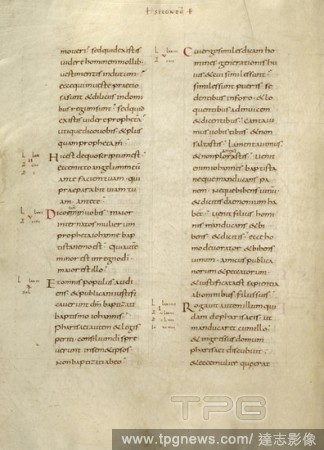 + SECUNDU +
moueri sed quid existis
uidere hominem mollib;
uestimentis indutum
ecce qui in ueste pretio
sa sunt & deliciis in domi
bus regum sunt sed quid
existis uidere propheta
utique dico uobis & plus
quam propheta
Hic est de quo scriptum est
ecce mitto angelum meum
ante faciem tuam
qui praeparabit uiam tu
am ante te
Dico enim uobis maior
inter natos mulierum
propheta iohanne bap
tista nemo est qui autem
minor est in regno di
maior est illo
Et omnis populus audi
ens & publicani iustifi
cauerunt dm baptizati
baptismo iohannis
pharisaei autem & legis
periti consilium di spre
uerunt in semet ipsos
non baptizati ab eo
Cui ergo similes dicam ho
mines generationis hu
ius & cui similes sunt
similes sunt pueris se
dentibus in foro & lo
quentibus ad inuicem
& dicentibus cantaui
mus uobis tibiis & non
saltastis lamentauimus
& non plorastis uenit
enim iohannes baptista
neque manducans pa
nem neque bibens uinu
& dicitis daemonium ha
bet uenit filius homi
nis manducans & bi
bens & dicitis ecce ho
mo deuorator & bibens
uinum amicus publica
norum & peccatorum
& iustificata est sapientia
ab omnibus filiis suis
Rogabat autem illum qui
dam de pharisaeis ut
manducaret cum illo
& ingressus domum
pharisaei discubuit
& ecce mulier quae erat
TPG
www.tpgnews.com／達志影像